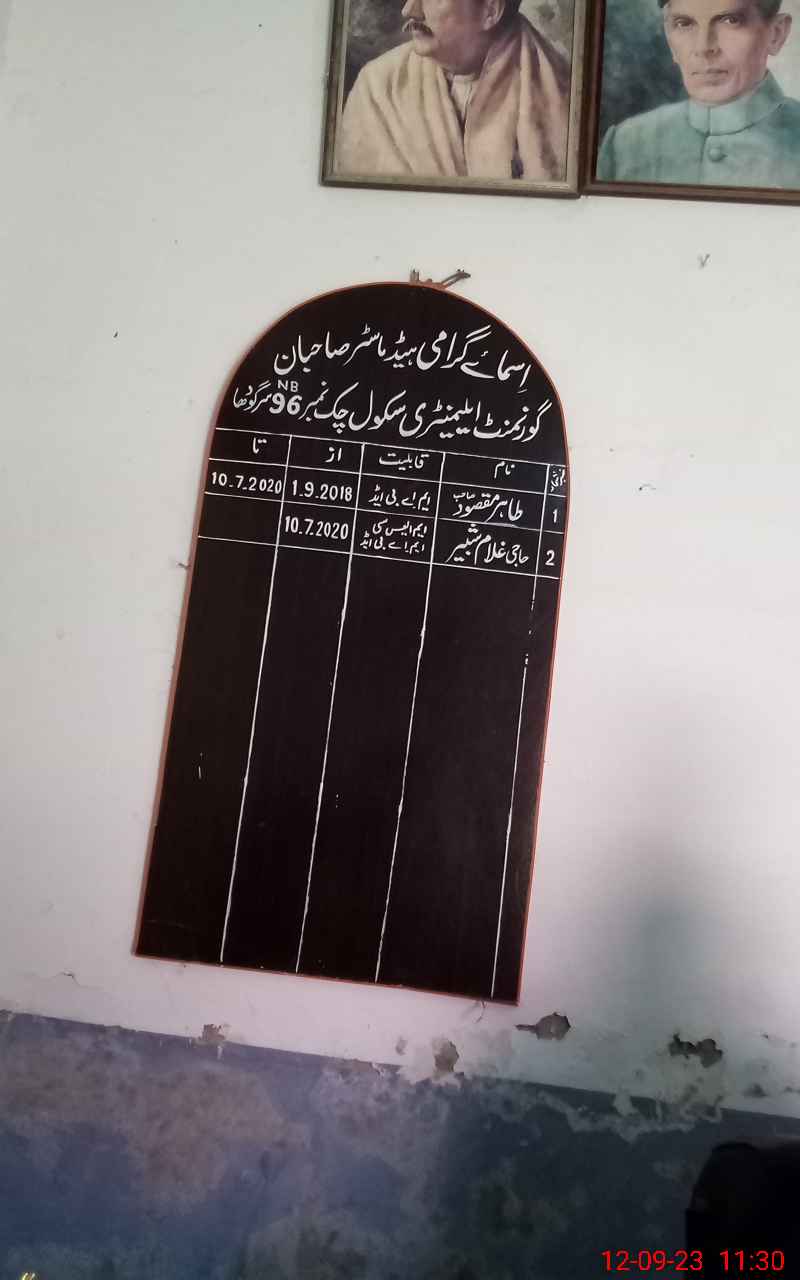 اسمائے گرامی ہیڈ ماسٹر صاحبان
گورنمنٹ ایلیمنٹری سکول چک نمبر 96 NB سرگودھا
نام قابلیت از تا
1 طاہر مقصود صاحب ایم اے بی ایڈ 1.9.2018 10.7.2020
2 حاجی غلام شبیر ایم ایس سی ایم اے بی ایڈ 10.7.2020
12-09-23 11:30